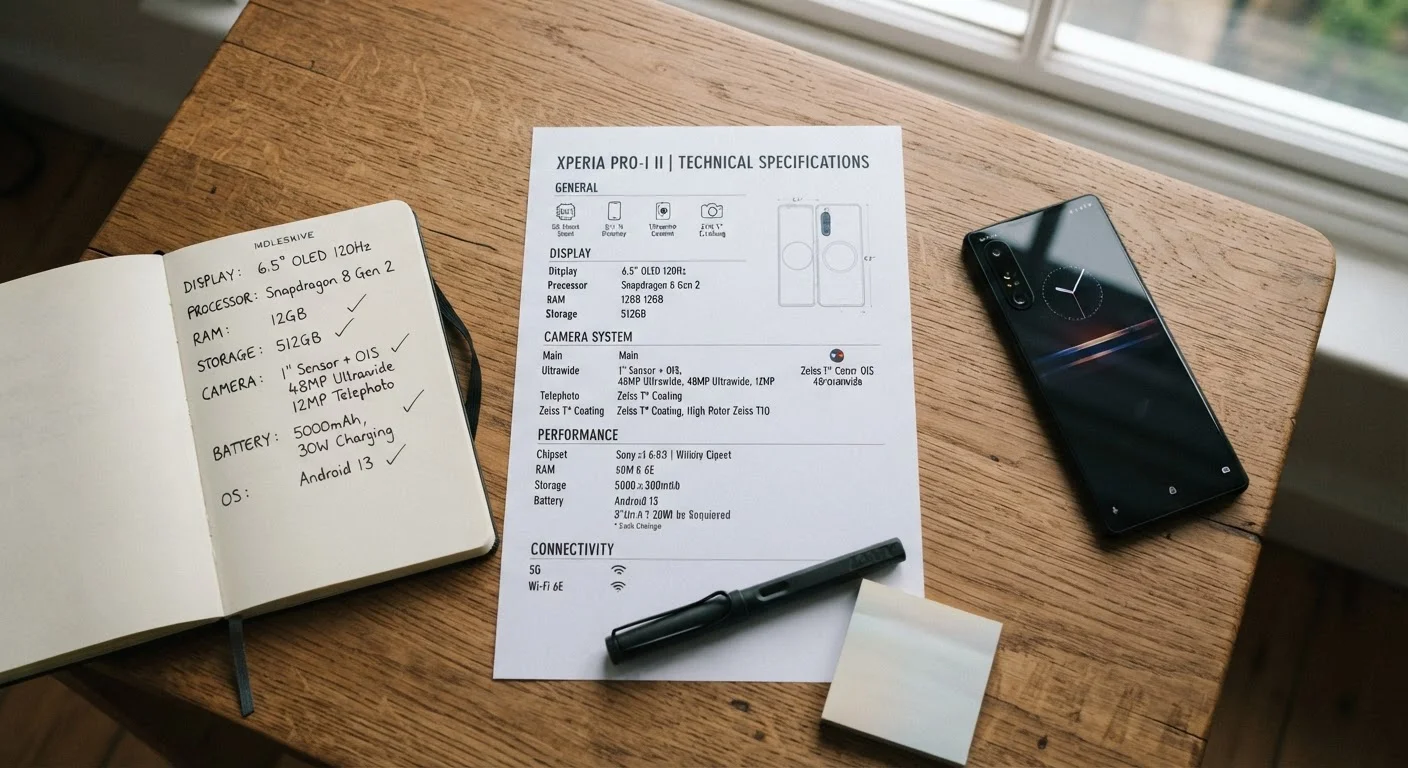 MOLESKIVE
DISPLAY: 6.5" OLED 120Hz
PROCESSOR: Snapdragon 8 Gen 2
RAM: 12GB
STORAGE: 512GB
CAMERA: 1" Sensor + OIS
48MP Ultravide
12MP Telephoto
BATTERY: 5000mAh,
30W Charging
OS: Android 13
XPERIA PRO-I II | TECHNICAL SPECIFICATIONS
GENERAL
DISPLAY
Ditplay 6.5" OLED 120Hz
Precessor Snapdragon 6 Gcn 2
RAM 1288 1268
Storage 5126B
CAMERA SYSTEM
Main Main
Ultrawide 1" Sensor + OIS,
48MP Ultrawide, 12MP
Telephoto Zeiss T* Coaling
Zeiss T* Coating Zeiss T* Coating, High Rotor Zeiss T10
Zeiss T" OIS
PERFORMANCE
Chipset Sony
RAM 6E
Storage
Battery Android 13
be Soquiered
CONNECTIVITY
5G
Wi-Fi 6E